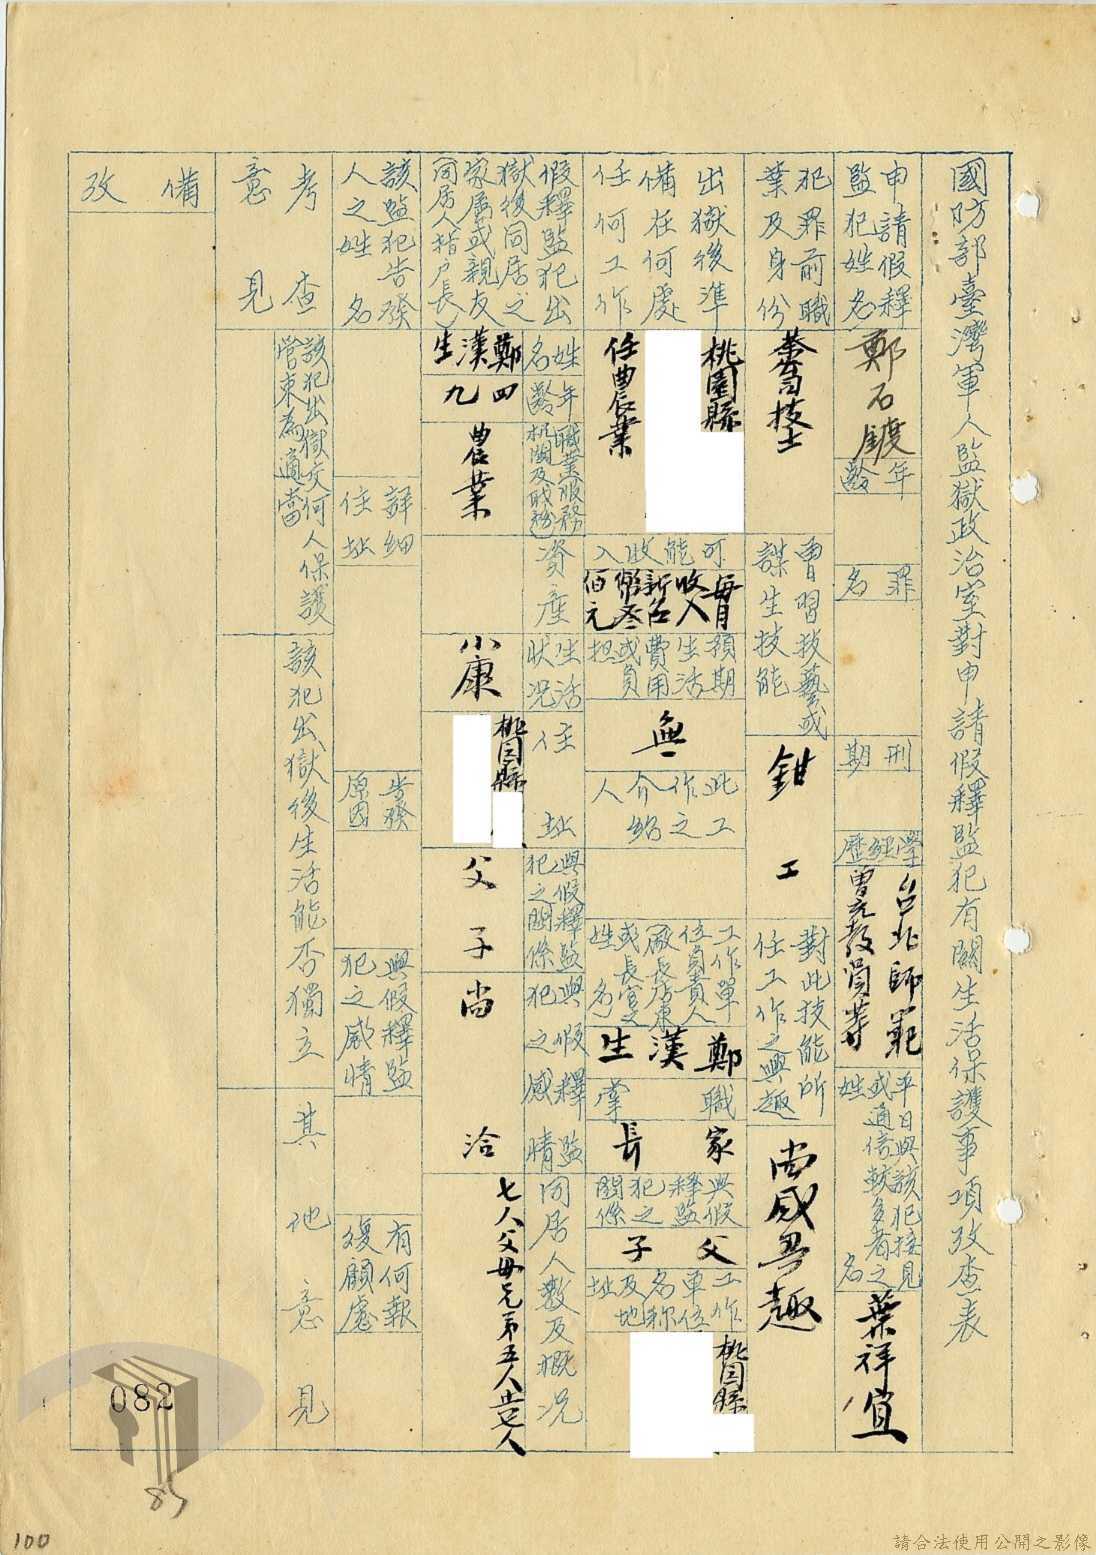 國防部臺灣軍人監獄政治室對申請假釋監犯有關生活保護事項攷查表
申請假釋
監犯姓名
鄭石鍍
年
齡
罪
名
刑
期
學經
歷
台北師範
曾充教員等
平日與該犯接見
或通信較多者之
姓名
葉祥宜
犯罪前職
業及身份
養蜂技士
曾習技藝或
謀生技能
鉗工
對此技能所
任工作之興趣
尚感興趣
出獄後準
備在何處
任何工作
桃園縣
任農業
可能收
入
每月
收入
新台
幣叁
佰元
預期
生活
費用
或負
担
無
此工
作之
介紹
人
工作單
位負責人
(廠長店東
或長官)
姓名
鄭漢生
職業
家長
與假
釋監
犯之
關係
父子
工作
單位
名称
及地
址
桃園縣
假釋監犯出
獄後同居之
家屬或親友
(同居人稱戶長)
姓
名
鄭漢
生
年
齡
四
九
職業服務
机關及職務
農業
資
產
生活
狀况
小康
住
址
桃園縣
與假釋監
犯之關係
父子
與假釋監
犯之感情
尚洽
同居人數及概况
七人父母兄弟五人告人
該監犯告發
人之姓名
詳細
住址
告發
原因
與假釋監
犯之感情
有何報
復顧慮
考查
意見
該犯出獄交何人保護
管束為適當
該犯出獄後生活能否獨立
其他意見
備攷
082
85
100
請合法使用公開之影像